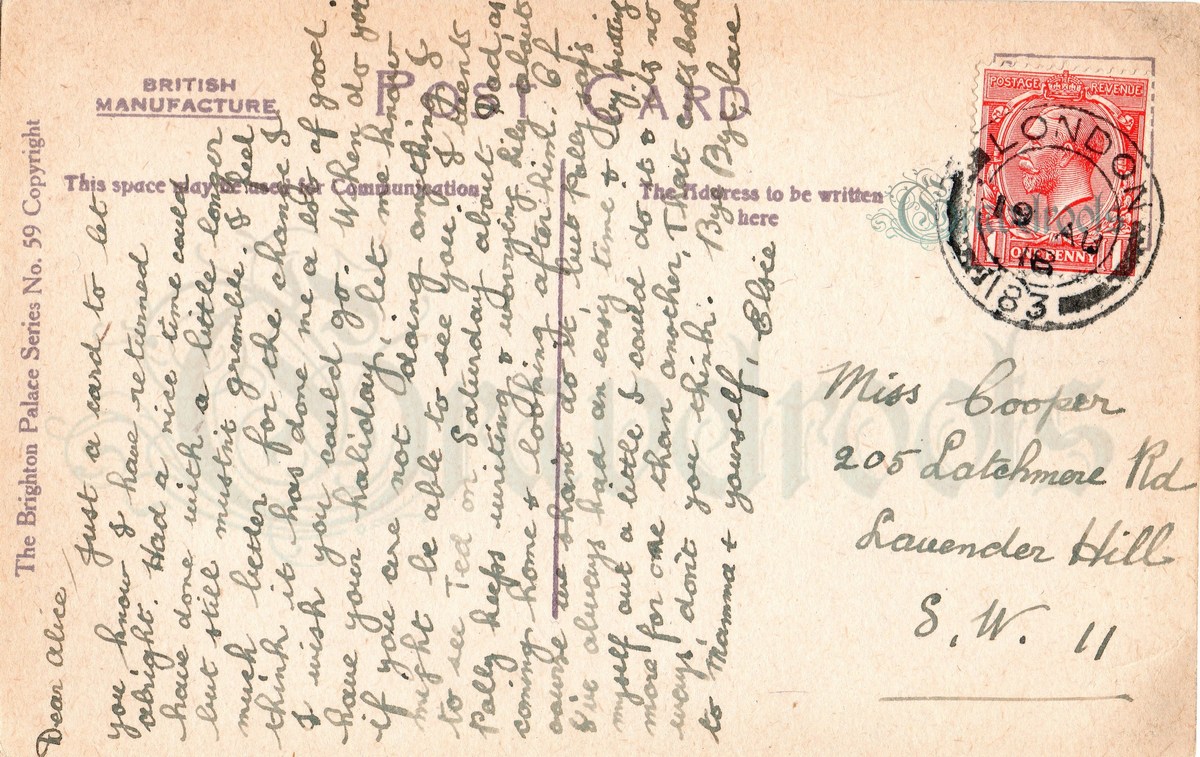 BRITISH
MANUFACTURE.
POST CARD
This space may be used for Communication
The Address to be written
here
The Brighton Palace Series No. 59 Copyright
POSTAGE REVENUE
ONE PENNY
LONDON
19 AU
18
183
Miss Cooper
205 Latchmere Rd
Lavender Hill
S. W. 11
Dear Alice
Just a card to let
you know I have returned
alright. Had a nice time could
have done with a little longer
but still mustnt grumble. I feel
much better for the change I
think it has done me a lot of good.
I wish you could go. When do you
have your holiday, let me know
if you are not doing anything I
might be able to see you, I went
to see Ted on Saturday about Dad, as
Polly keeps writing & worrying him about
coming home & looking after him. Of
course we shant do it, but Polly says
I've always had an easy time & by putting
myself out a little I could do it & its no
more for one than another, That cuts both
ways, dont you think. Bye Bye love
to Mamma & yourself, Elsie
Grandroots